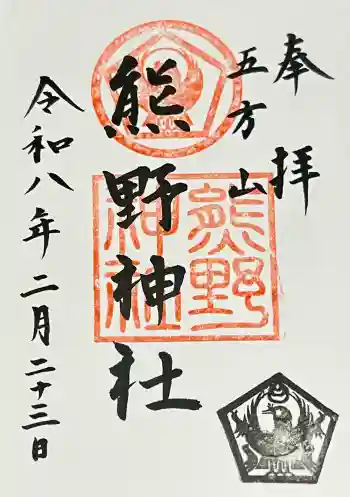 奉拝
五方山
熊野神社
熊野
神社
令和八年二月二十三日